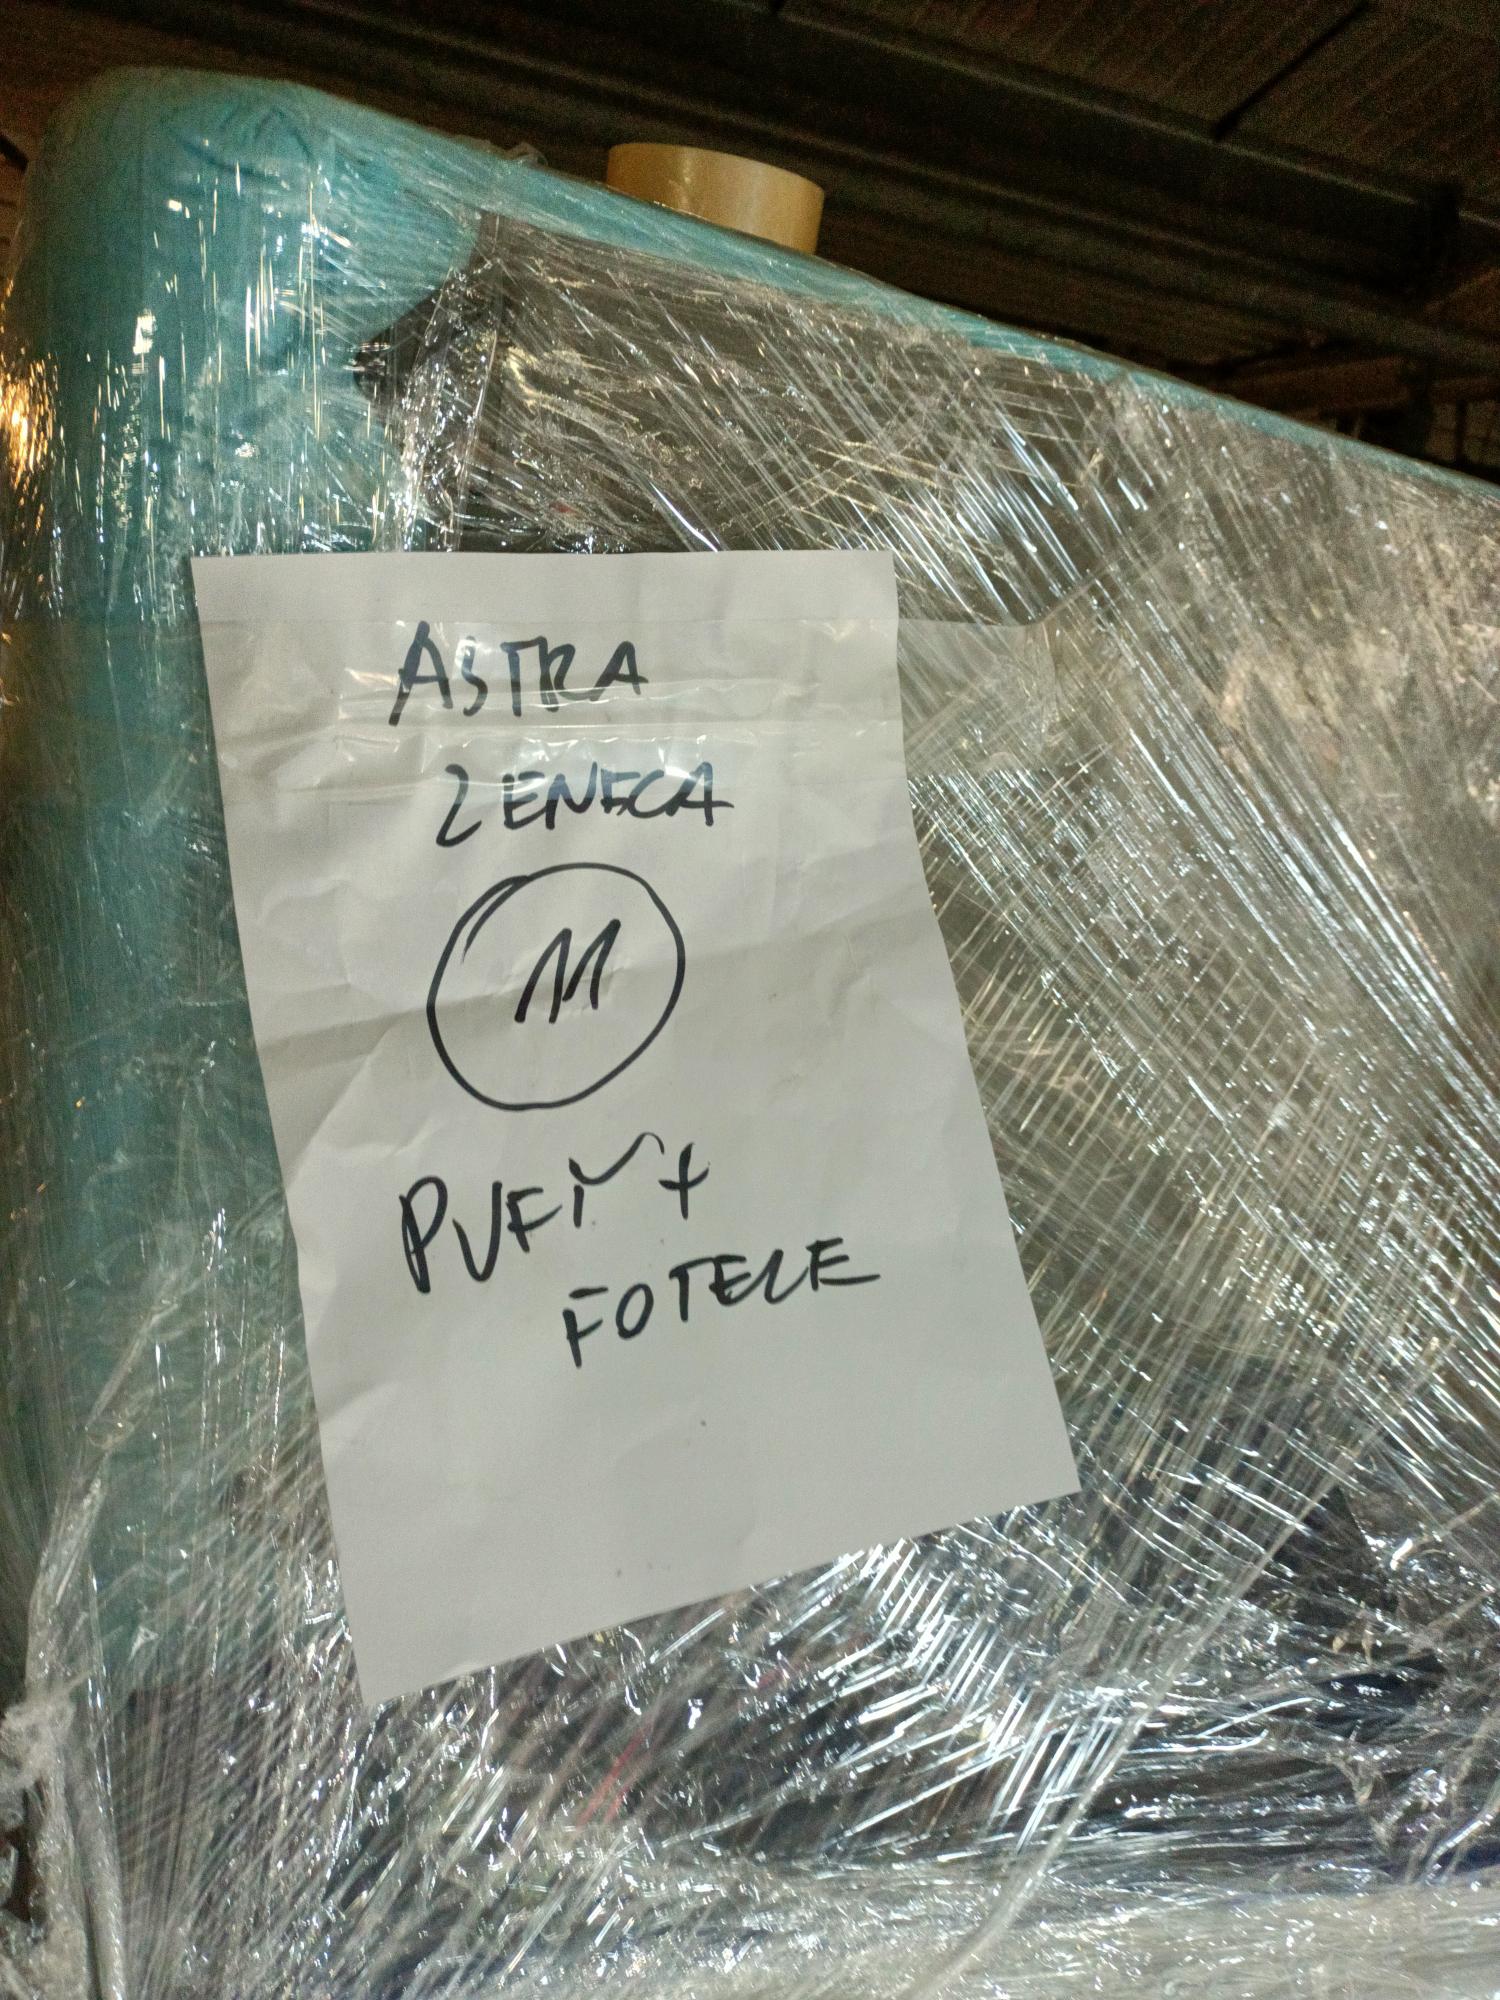 ASTRA
ZENECA
11
PUFY +
FOTELE